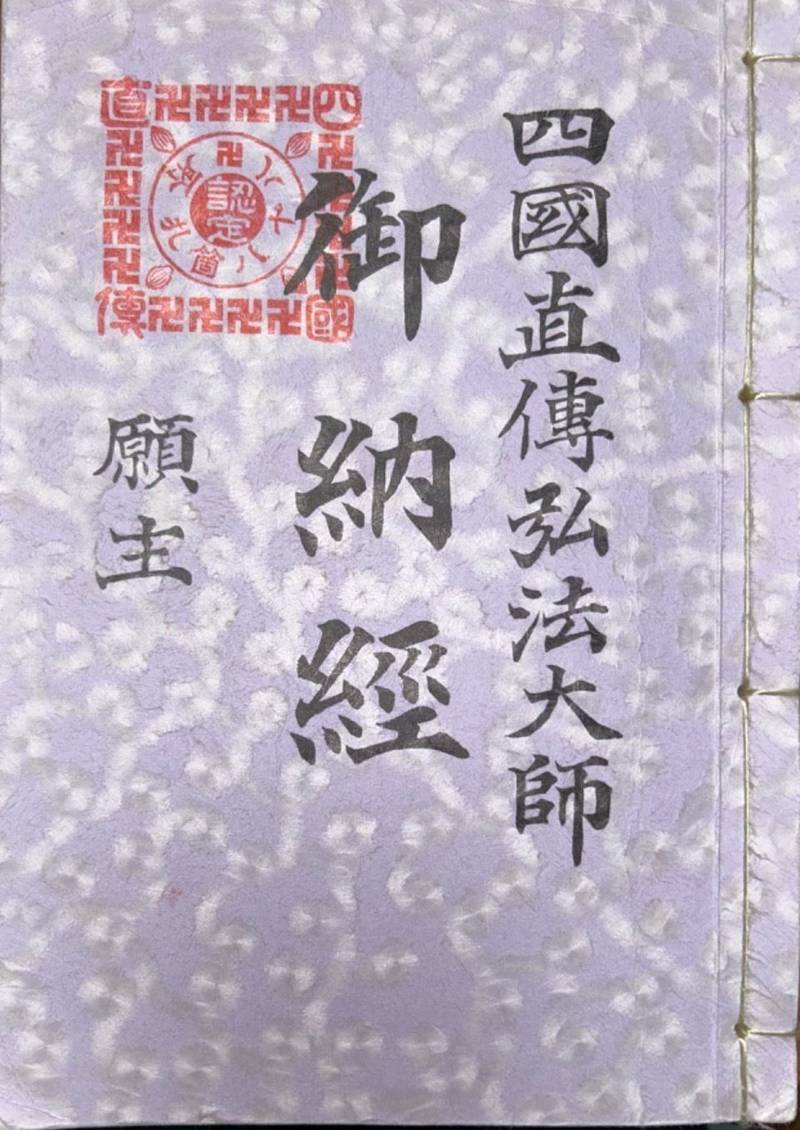 四國直傳弘法大師
御納經
願主
四國
直傳
卍八十八箇札
認定